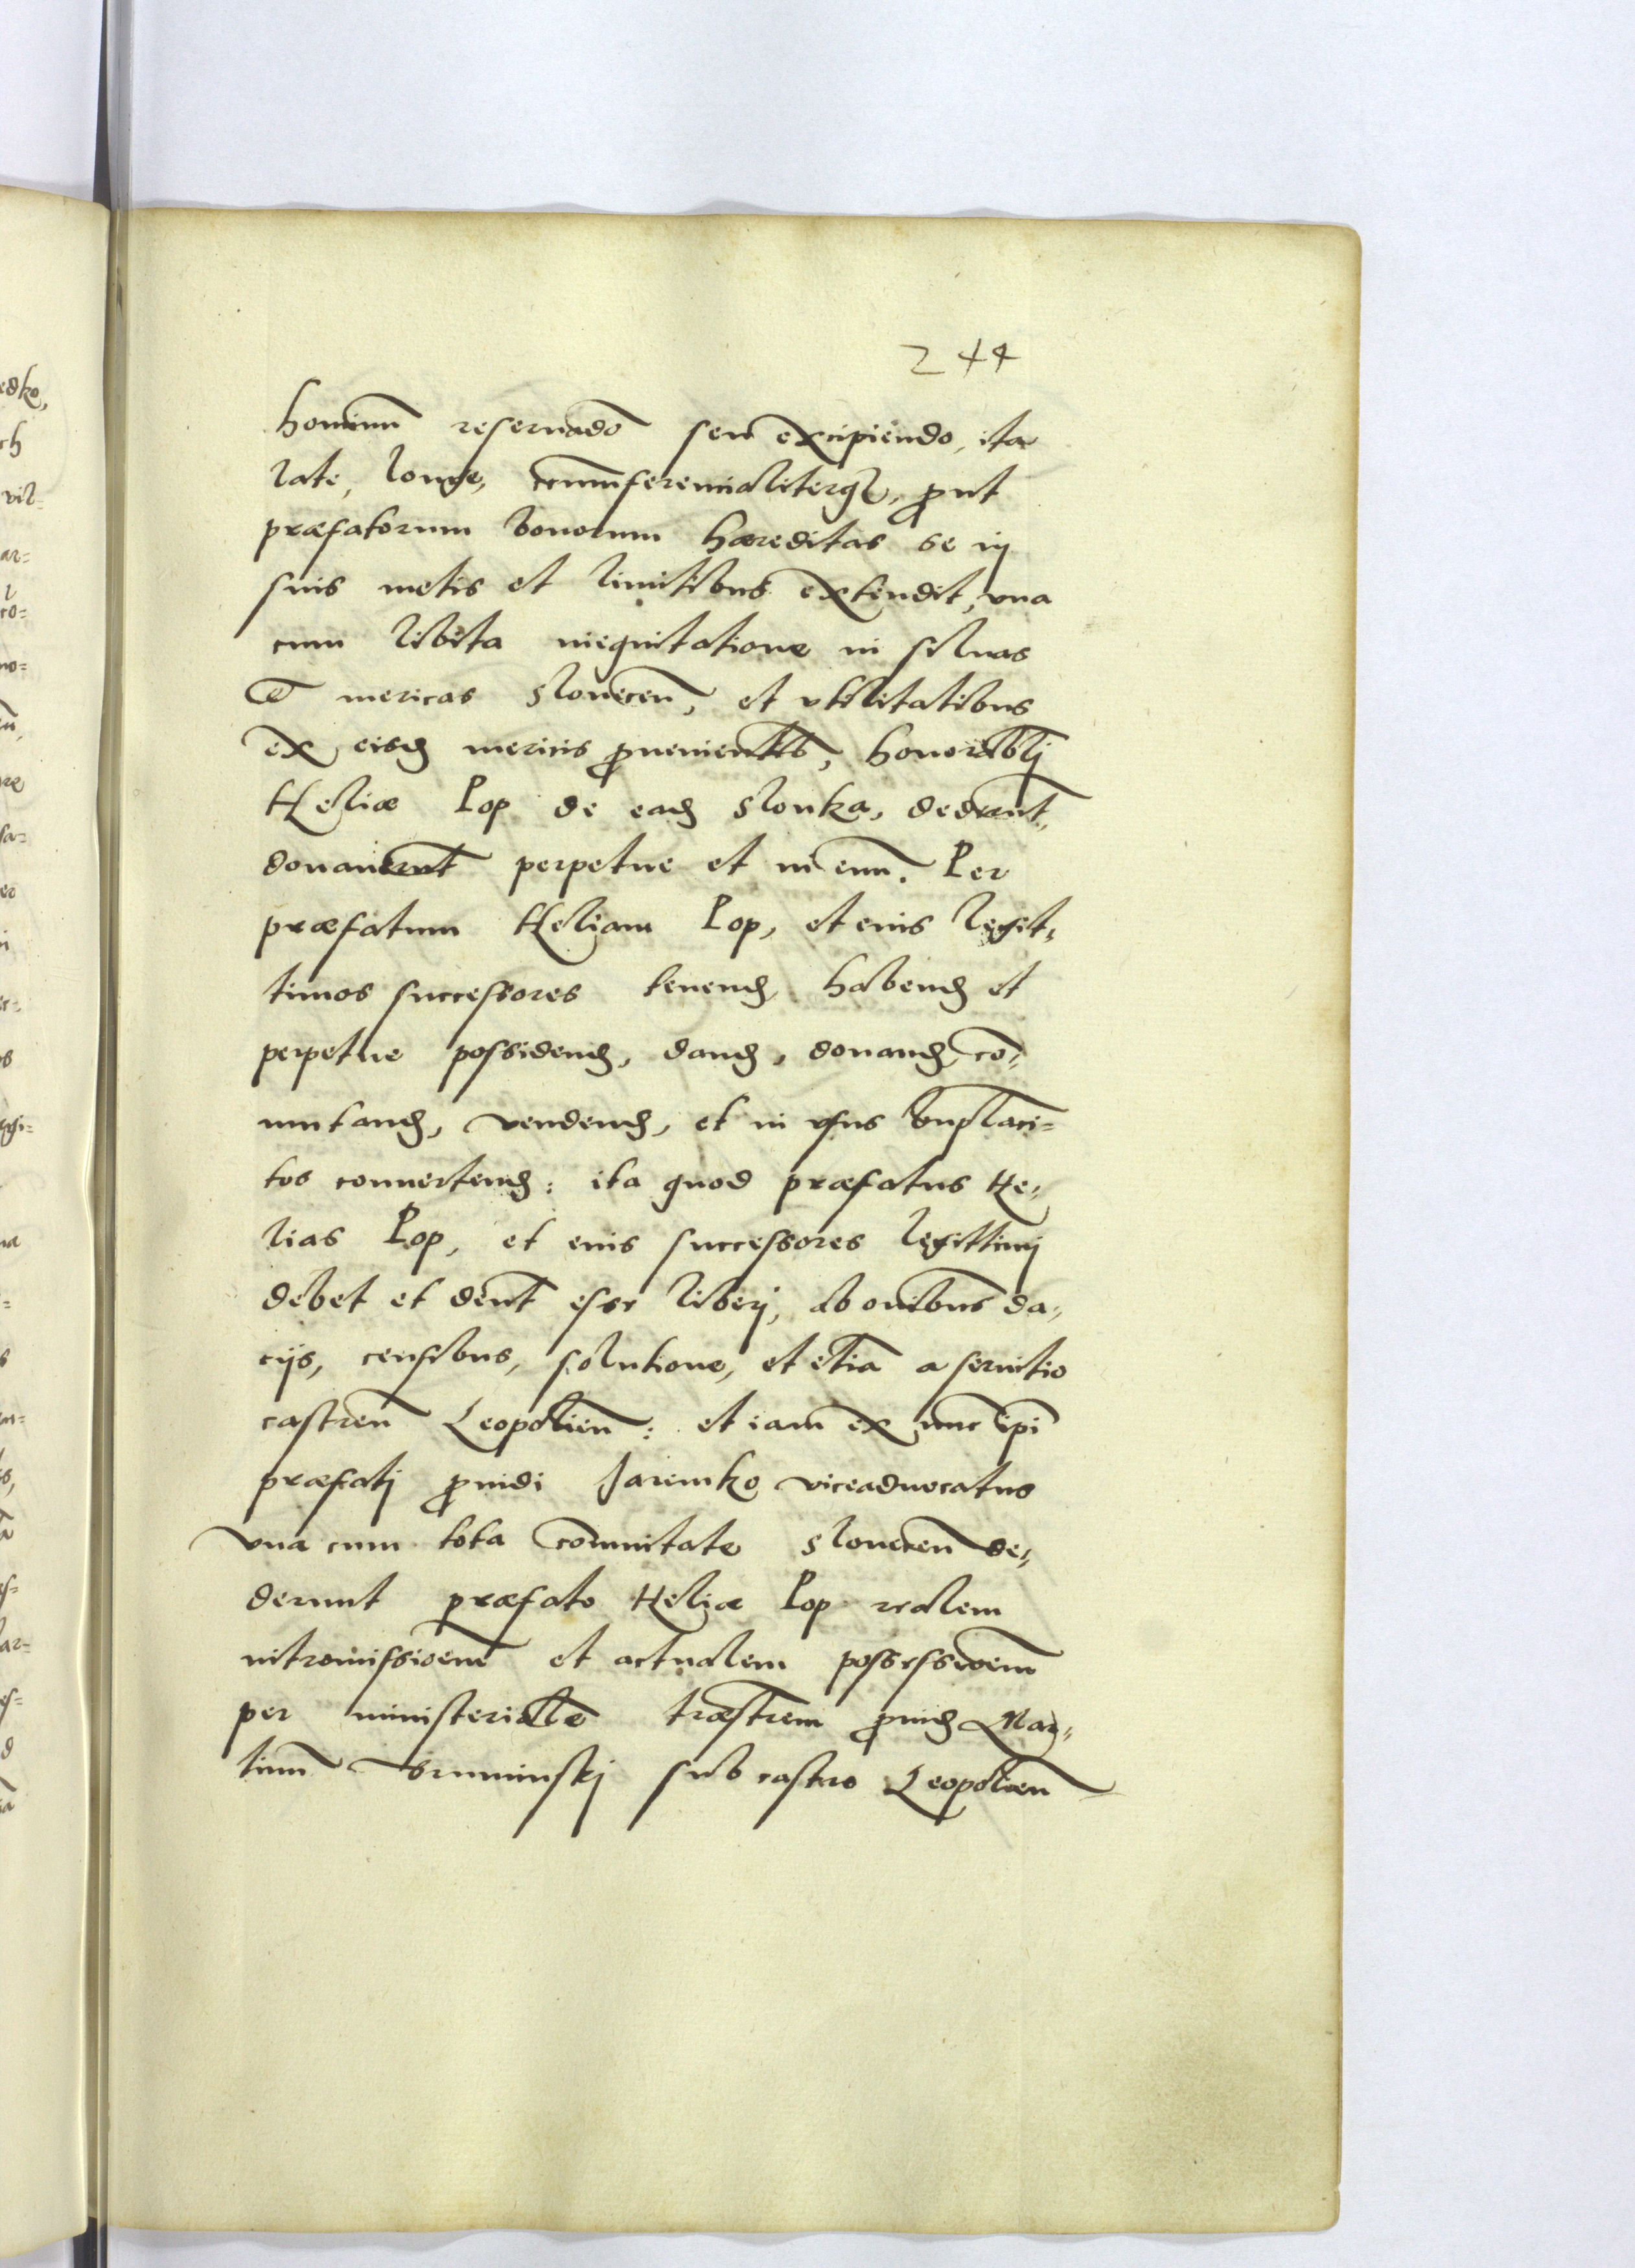 244
hominū reseruādo seu excipiendo, ita
late, longe, circumferentialiterq₃, ꝓut
præfatorum bonorum hæreditas se in
suis metis et limitibus extendit, vna
cum libera inequitatione in siluas
Et mericas Slonecen̄, et vtilitatibus
ex eisd mericis ꝓuenientib, honorabilj
Heliæ Pop de ead Slonka, dederunt,
donauerunt perpetue et in euū. Per
præfatum Heliam Pop, et eius legit,
timos successores tenend, habend et
perpetue possidend, dand, donand, co,
mutand, vendend, et in vsus bn̄placi=
tos conuertend: ita quod præfatus He,
lias Pop, et eius successores legittimj
debet et deb̄nt esse liberj, ab om̄ibus da,
cijs, censibus, solutione, et etiā a seruitio
castren̄ Leopolien̄: et iam ex nunc ip̄i
præfatj ꝓuidi Jaremko viceaduocatus
vna cum tota com̄unitate Slonecen̄ de,
derunt præfato Heliæ Pop realem
intromissioem̄ et actualem possessioem̄
per ministerialē terrestrem ꝓuid Mar,
tinū Bruminskj sub castro Leopolien̄
edko,
ch
vil=
ar=
co=
no=